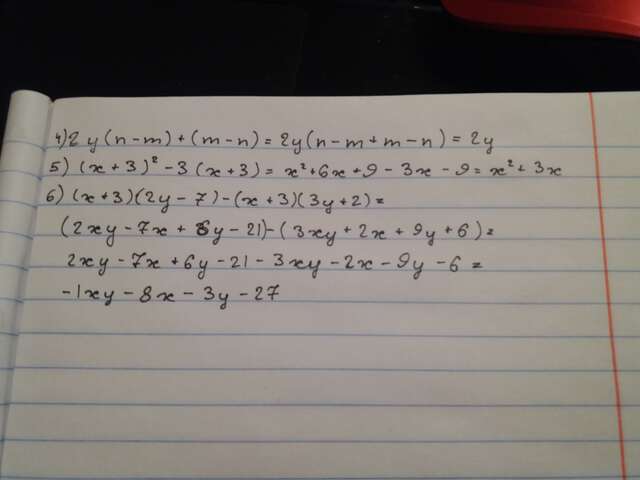 4) 2y(n-m)+(m-n) = 2y(n-m+m-n) = 2y
5) (x+3)² - 3(x+3) = x²+6x+9-3x-9 = x²+3x
6) (x+3)(2y-7)-(x+3)(3y+2) =
(2xy-7x+6y-21)-(3xy+2x+9y+6) =
2xy-7x+6y-21-3xy-2x-9y-6 =
-1xy-8x-3y-27